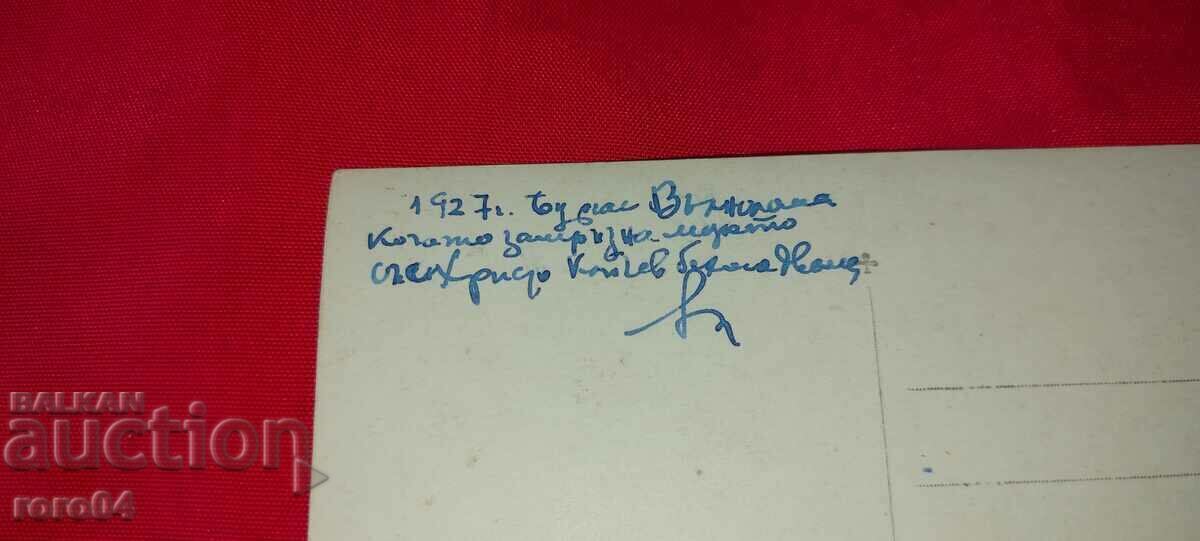 1927г. Бургас
когато замръзна морето
със Христо Кънчев
BALKAN
auction
roro04